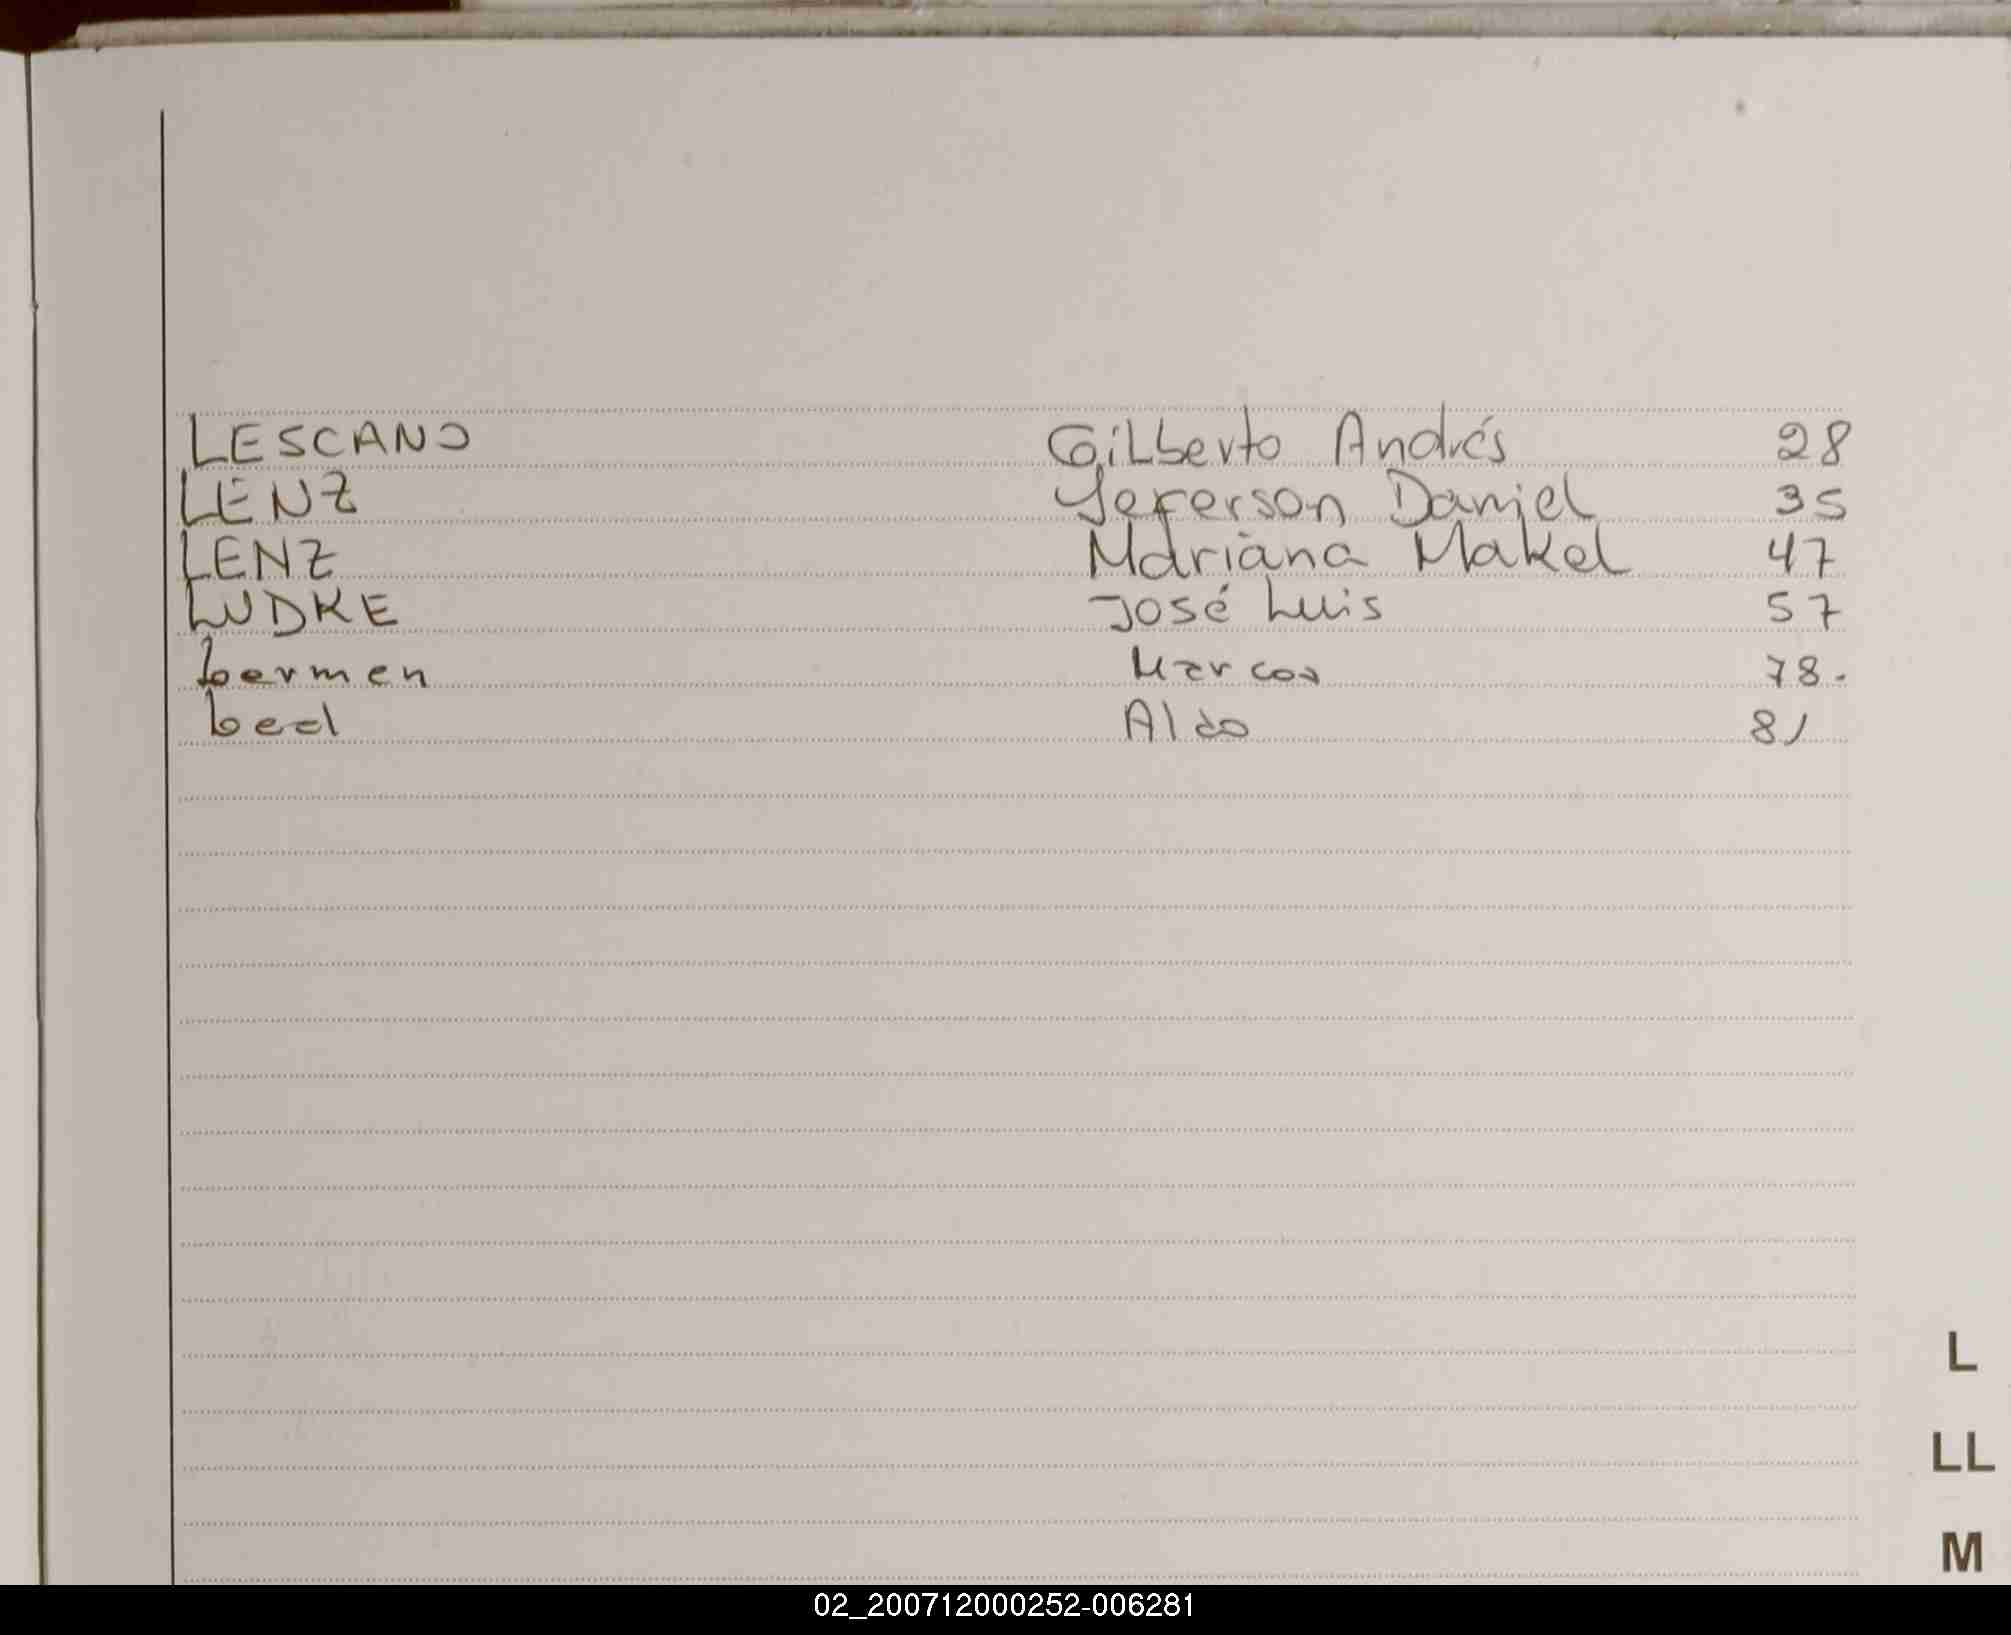 LESCANO Gilberto Andrés 28
LENZ Jeferson Daniel 35
LENZ Mariana Makel 47
LUDKE José Luis 57
Lermen Marcos 78.
Leal Aldo 81
L
LL
M
02_200712000252-006281